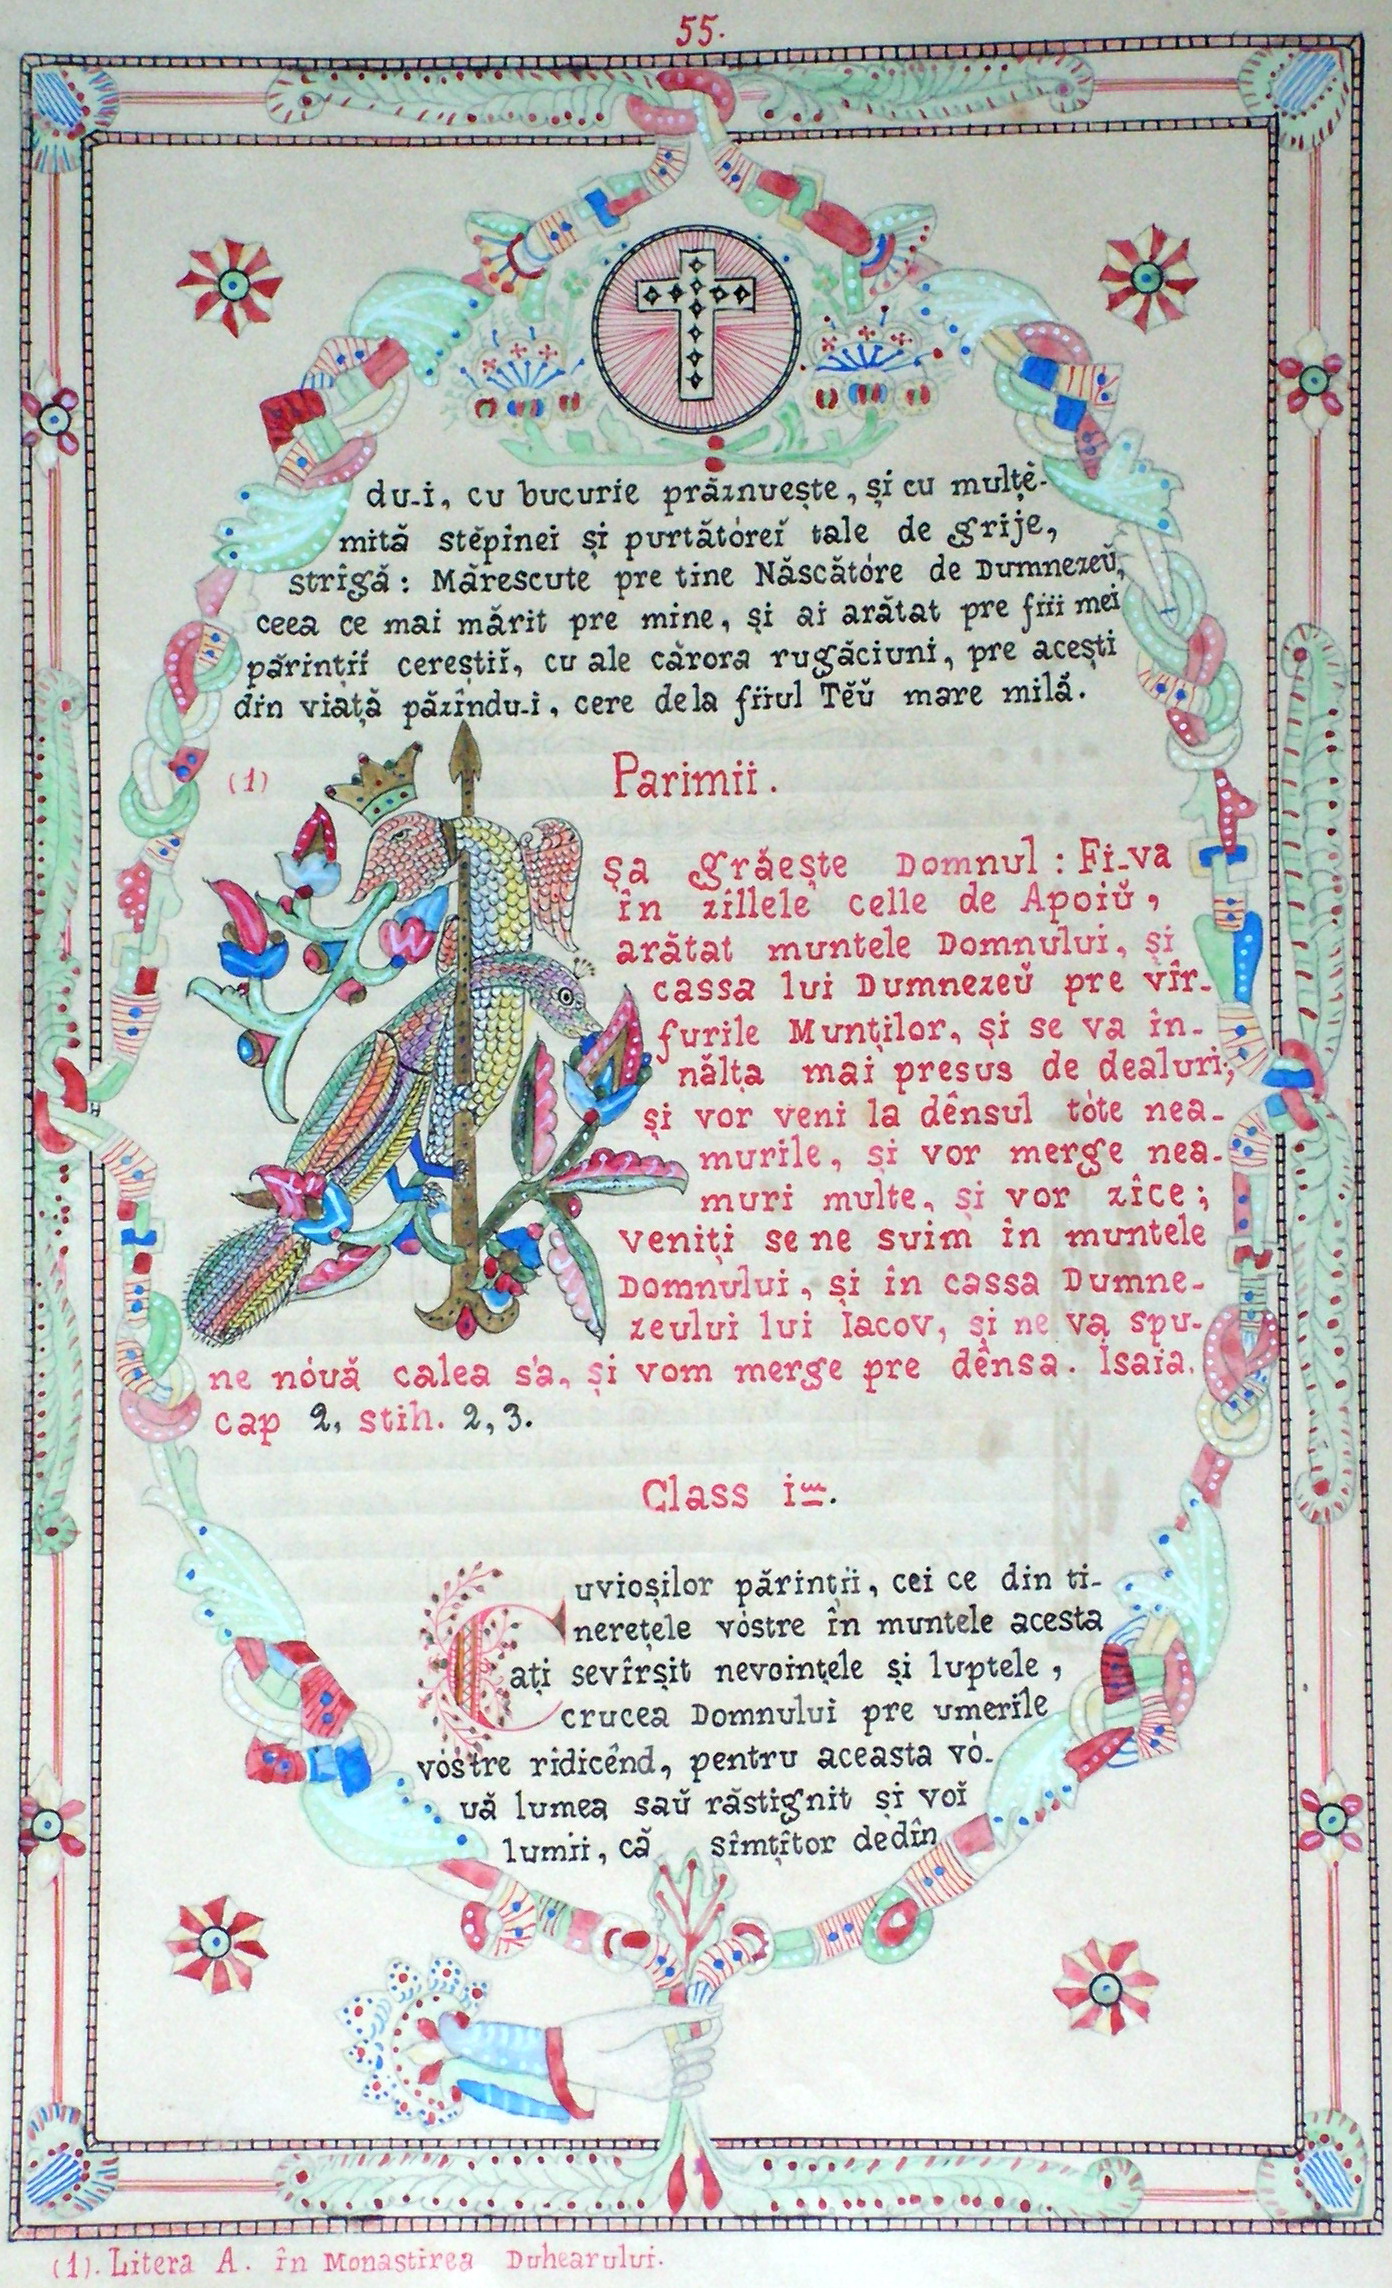 55.
du-i, cu bucurie prăznuește, și cu mulțĕ-
mită stĕpînei și purtătóreĭ tale de grije,
strîgă: Mărescute pre tine Născătóre de Dumnezeŭ,
ceea ce mai mărit pre mine, și ai arătat pre fiii mei
părințiĭ cereștiĭ, cu ale cărora rugăciuni, pre acești
din viață păzîndu-i, cere dela fiiul Tĕŭ mare milă.
(1) Parimii.
șa grăește Domnul: Fi-va
în zillele celle de Apoiŭ,
arătat muntele Domnului, și
cassa lui Dumnezeŭ pre vîr-
furile Munților, și se va în-
nălța mai presus de dealuri;
și vor veni la dênsul tóte nea-
murile, și vor merge nea-
muri multe, și vor zîce;
veniți se ne suim în muntele
Domnului, și în cassa Dumne-
zeului lui Iacov, și ne va spu-
ne nóuă calea sa, și vom merge pre dênsa. Isaia.
cap 2, stih. 2, 3.
Class iᵐ.
Cuvioșilor părinții, cei ce din ti-
nerețele vóstre în muntele acesta
ați sevîrșit nevoințele și luptele,
crucea Domnului pre umerile
vóstre ridicênd, pentru aceasta vó-
uă lumea saŭ răstignit și voĭ
lumii, că sîmțîtor dedîn
(1). Litera A. în Monastirea Duhearului.